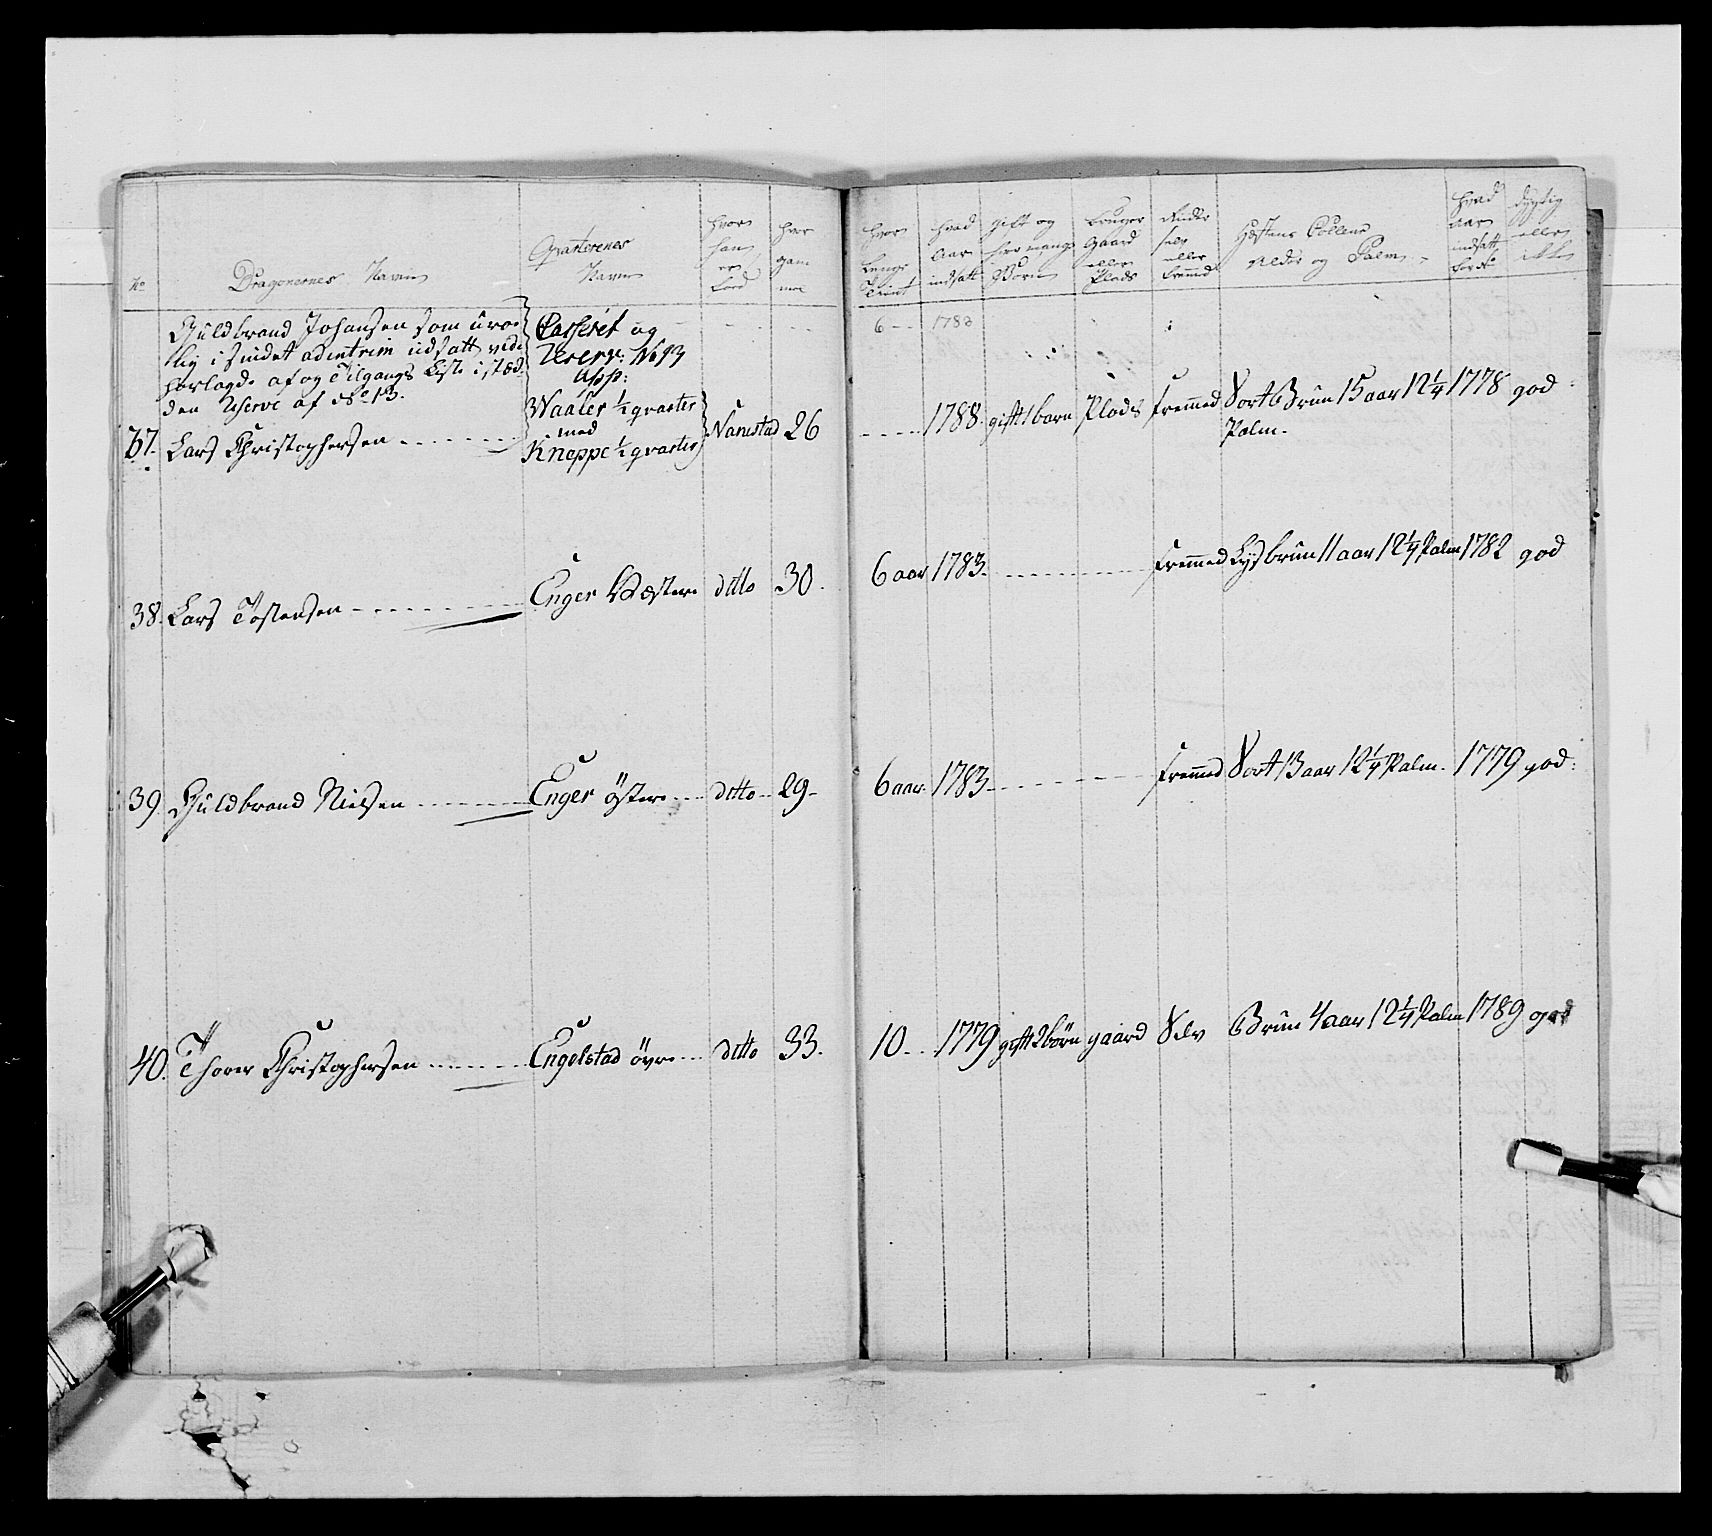 No
Dragonernes Navne
Qvarterenes
Navne
hvor
han
er
Född
hvor
gam
mel
hvor
Lenge
tient
hvad
Aar
indsatt
gift og
hvor mange
Börn
bruger
Gaard
eller
Plads
Rinder
selv
eller
fremmed
Hæstens Couleur
Alder og Palm
hvad
aar
indsatt
dygtig
eller
ikke
Guldbrand Johansen som uro=
lig i Sindet ad intrim udsatt vide
forlagde af og Tilgangs Liste i stæd
den Reserve af No 13.
37. Lars Christophersen
Casseret og
Reserv: No 13
App:
Waaler ½ qvarter
med
Kneppe ½ qvarter
Nanestad 26
6 1783
1788 gift 1 barn Plads fremmed Sort Brun 15 aar 12¼ 1778 god
Palm.
38. Lars Tostensen Enger Vestere ditto 30. 6 aar 1783. fremmed Lys brun 11 aar 12¼ Palm 1782 god
39. Guldbrand Nielsen Enger östere ditto 29 6 aar 1783 fremmed Sort 13 aar 12¼ Palm. 1779 god
40. Thorer Christophersen Engelstad övre ditto 33. 10 1779 gift 2 börn gaard Selv Brun 4 aar 12¼ Palm 1789 god